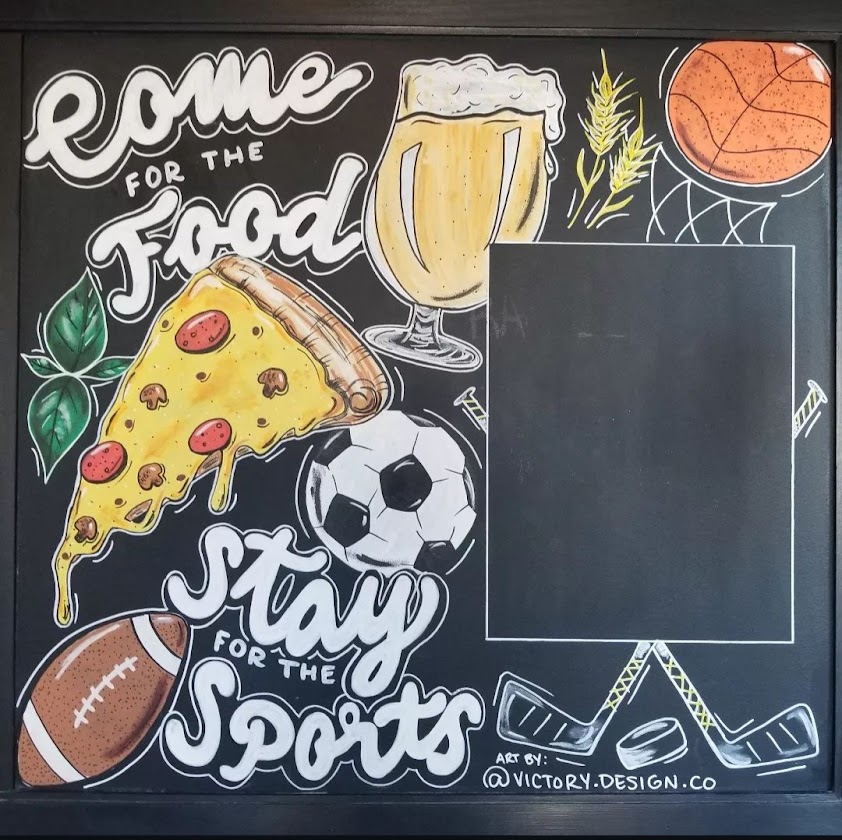 Come
FOR THE
Food
Stay
FOR THE
Sports
ART BY:
@VICTORY.DESIGN.CO